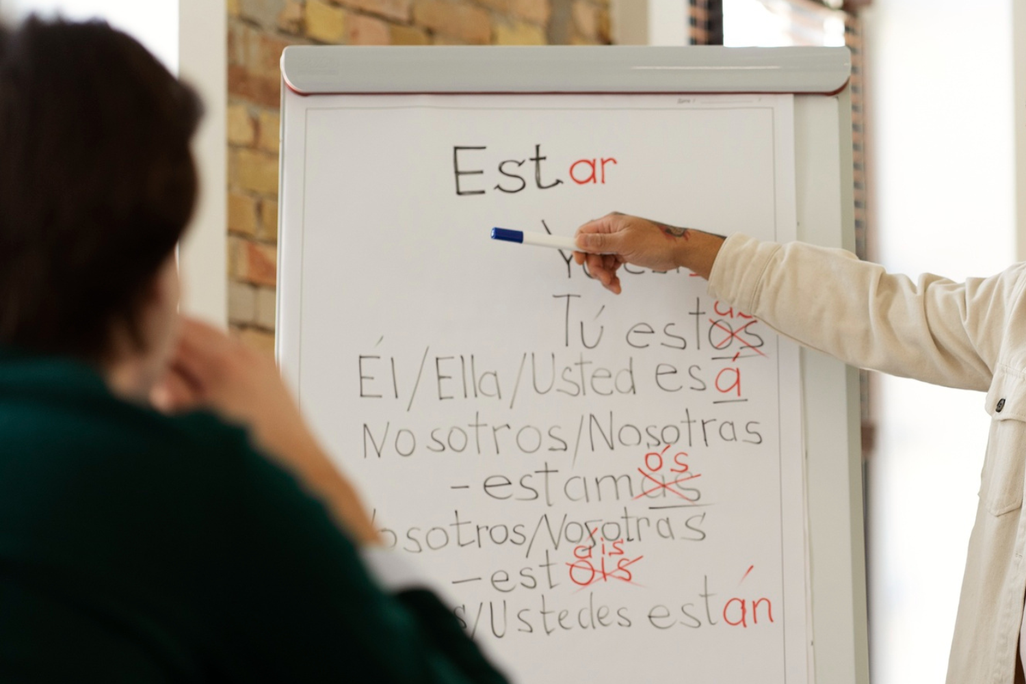 Estar
Yo
ás
Tú estos
Él/Ella/Usted esá
Nosotros/Nosotras
ós
- estamas
osotros/Nosotras
áis
- estois
s/Ustedes están